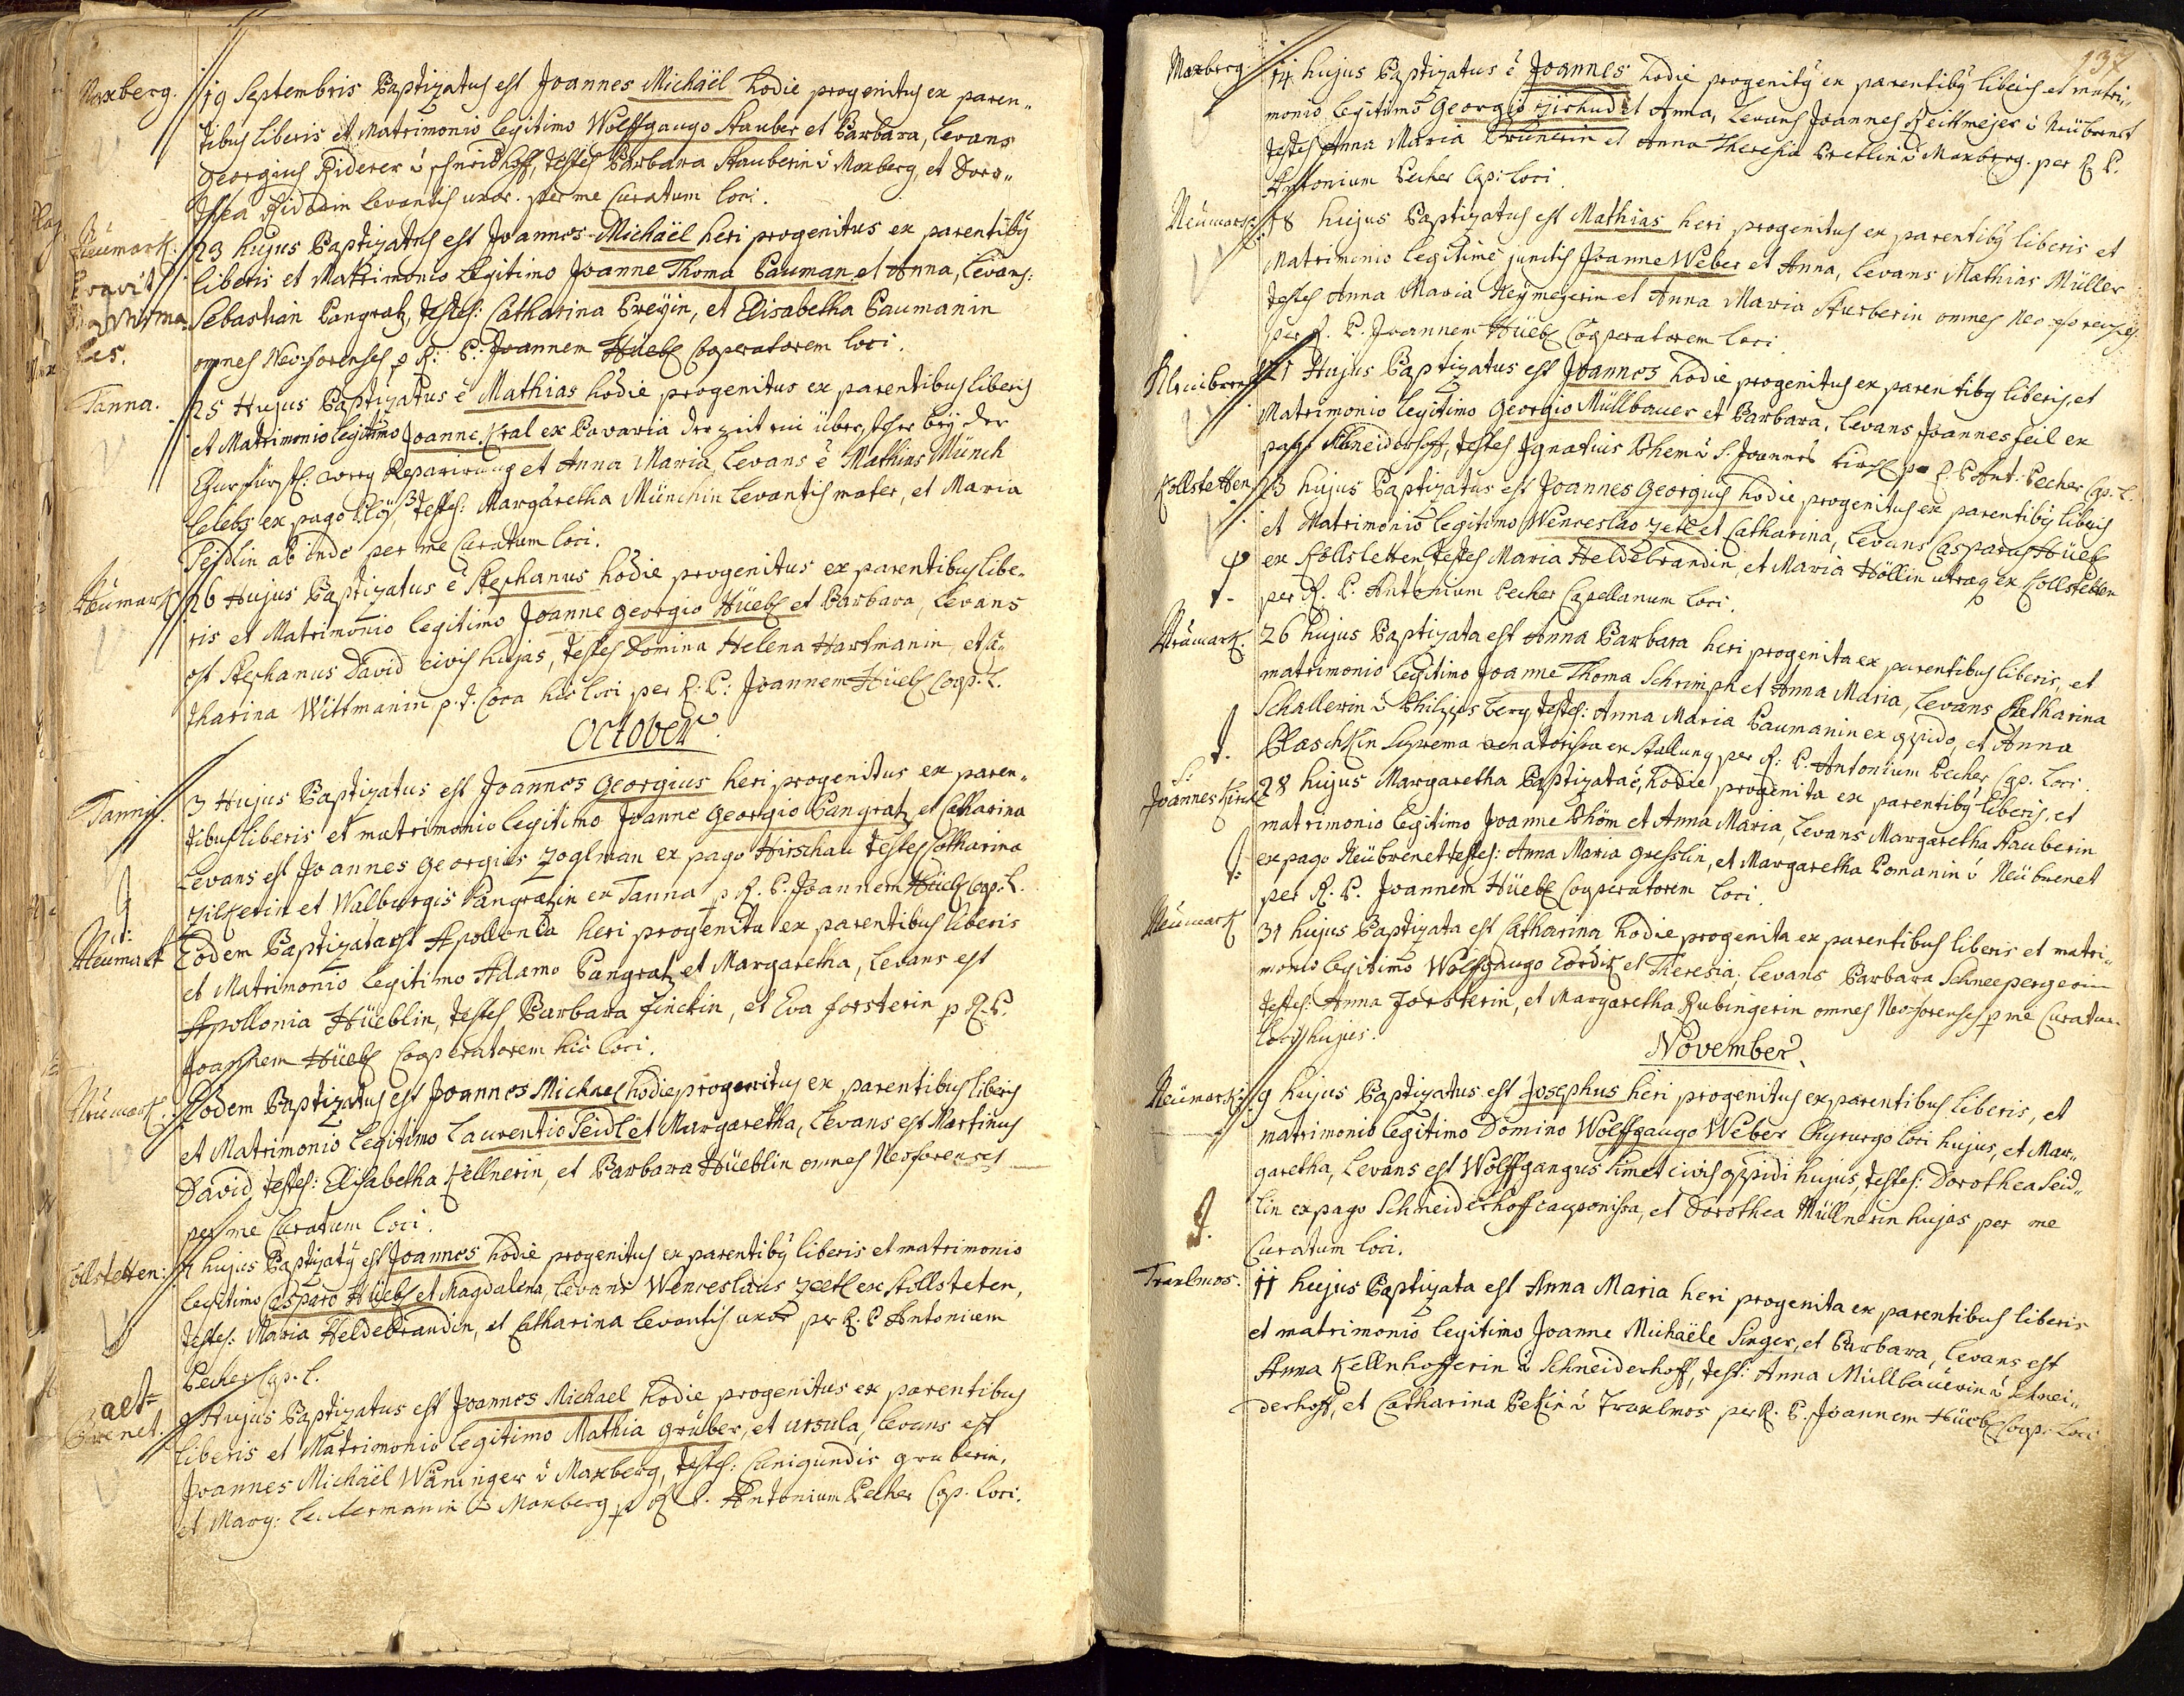 Maxberg. 19 Septembris Baptizatus est Joannes Michaël hodie progenitus ex paren„
tibus liberis et Matrimonio legitimo Wolffgango Stauber et Barbara, Levans
Georgius Riderer à schneidhoff, testes Barbara Stauberin à Maxberg, et Doro„
thea Riderin Levantis uxor. per me Curatum loci.
Neumark: 23 hujus Baptizatus est Joannes Michaël heri progenitus ex parentibȝ
liberis et Matrimonio legitimo Joanne Thoma Pauman et Anna, Levans:
Sebastian Pangratz, testes: Catharina Preyin, et Elisabetha Paumanin
omnes Neo-forenses p R: P: Joannem Hüebl Cooperatorem loci.
Tanna. 25 Hujus Baptizatus ē Mathias hodie progenitus ex parentibus liberis
et Matrimonio legitimo Joanne Kral ex Bavaria der zeit ein überseher bey der
Churfürstl: weeg Reparirung et Anna Maria, Levans ē Mathias Münch
Celebs ex pago testes: Margaretha Münchin Levantis mater, et Maria
ab inde per me Curatum loci.
Neumark 26 Hujus Baptizatus ē Stephanus hodie progenitus ex parentibus libe„
ris et Matrimonio legitimo Joanne Georgio Hüebl et Barbara, Levans
est Stephanus David civis hujas, testes Domina Helena Hartmanin, et Ca„
tharina Wittmanin p.t. Coca hic loci per R: P: Joannem Hüebl Coop. L.
October.
Tanna. 3 Hujus Baptizatus est Joannes Georgius heri progenitus ex paren„
tibus liberis et matrimonio legitimo Joanne Georgio Pangratz et Catharina
Levans est Joannes Georgius Zoglman ex pago Hirschau testes Catharina
Zilkerin et Walburgis Pangratzin ex Tanna p R. P. Joannem Hüebl Coop: L.
Neumark Eodem Baptizata est Apollonia heri progenita ex parentibus liberis
et Matrimonio legitimo Adamo Pangratz et Margaretha, Levans est
Apollonia Hüeblin, testes Barbara Finckin, et Eva forsterin p R. P.
Joannem Hüebl Cooperatorem hic loci.
Neumark. Eodem Baptizatus est Joannes Michael hodie progenitus ex parentibus liberis
et Matrimonio legitimo Laurentio Seidl et Margaretha, Levans est Martinus
David, testes: Elisabetha Kellnerin, et Barbara Hüeblin omnes Neoforenses
per me Curatum loci.
Kollstetten: 7 hujus Baptizatȝ est Joannes hodie progenitus ex parentibȝ liberis et matrimonio
legitimo Casparo Hüebl et Magdalena, Levans Wenceslaus Zettl ex Kollsteten,
testes: Maria Heldebrandin, et Catharina Levantis uxor per R. P Antonium
Pecher Cap. L.
alt- Brenet. 9 Hujus Baptizatus est Joannes Michael hodie progenitus ex parentibus
liberis et Matrimonio legitimo Mathia Gruber, et ursula, Levans est
Joannes Michaël Waninger à Maxberg, testes: Cunigundis gruberin,
et Marg: à Maxberg p R P. Antonium Pecher Cap. loci.
137
Maxberg. 14 hujus Baptizatus ē Joannes hodie progenitȝ ex parentibȝ liberis et matri„
monio legitimo Georgio et Anna, Levans Joannes Reittmejer à Neübrenet
testes Anna Maria Brunerin et Anna Theresia Pretlin à Maxberg. per R P.
Antonium Pecher Cap: loci.
Neumark: 18 hujus Baptizatus est Mathias heri progenitus ex parentibȝ liberis et
Matrimonio legitimè junctis Joanne Weber et Anna, Levans Mathias Müller
testes Anna Maria Heymejerin et Anna Maria Sturberin omnes Neo-forenses
per R. P. Joannem Hüebl Cooperatorem loci.
21 Hujus Baptizatus est Joannes hodie progenitus ex parentibȝ liberis, et
Matrimonio legitimo Georgio Müllbauer et Barbara, Levans Joannes feil ex
pago Schneiderhoff, testes Ignatius Bhem à S. Joannes kirch p R. P. Ant: Pecher Cap. L.
Kollstetten 23 hujus Baptizatus est Joannes Georgius hodie progenitus ex parentibȝ liberis
et Matrimonio legitimo Wenceslao Zetl et Catharina, Levans Casparus Hüebl
ex Kollstetten testes Maria Heldebrandin, et Maria Höllin utraq ex Kollstetten
per R. P. Antonium Pecher Capellanum loci.
Neumark. 26 hujus Baptizata est Anna Barbara heri progenita ex parentibus liberis, et
matrimonio legitimo Joanne Thoma Schrimph et Anna Maria, Levans Catharina
Schallerin à Philipps berg, testes: Anna Maria Paumanin ex opido, et Anna
Blaschkin ex Stallung per R: P. Antonium Pecher Cap. loci.
S: Joannes kirch 28 hujus Margaretha Baptizata ē, hodie progenita ex parentibȝ liberis, et
matrimonio legitimo Joanne Bhöm et Anna Maria, Levans Margaretha Stauberin
ex pago Neübrenet testes: Anna Maria Gresslin, et Margaretha Pomanin à Neübrenet
per R. P. Joannem Hüebl Cooperatorem loci.
Neumark 31 hujus Baptizata est Catharina hodie progenita ex parentibus liberis et matri„
monio legitimo Wolffgango Cordik et Theresia, Levans Barbara Schneepergerin
testes: Anna Forsterin, et Margaretha Rubingerin omnes Neoforenses p me Curatum
loci hujus.
November.
Neumark: 9 hujus Baptizatus est Josephus heri progenitus ex parentibus liberis, et
matrimonio legitimo Domino Wolffgango Weber Chyrurgo loci hujus, et Mar„
garetha, Levans est Wolffgangus Simet civis oppidi hujus, testes: Dorothea Seid„
lin ex pago Schneiderhoff cauponissa, et Dorothea Müllnerin hujas per me
Curatum loci.
Traxlmos. 11 hujus Baptizata est Anna Maria heri progenita ex parentibus liberis
et matrimonio legitimo Joanne Michaële Singer, et Barbara, Levans est
Anna Kellnhofferin à Schneiderhoff, test: Anna Müllbauerin à Schnei„
derhoff, et Catharina Pekin à Traxlmos per R. P. Joannem Hüebl Coop. loci